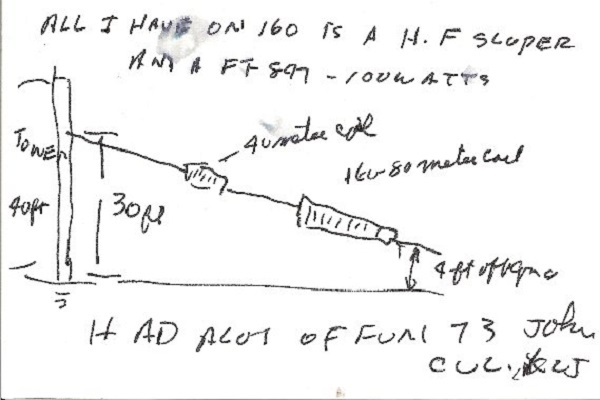 ALL I HAVE ON 160 IS A H.F SLOPER
AND A FT 897 - 100 WATTS
40 meter coil
160-80 meter coil
TOWER
40ft
30ft
4 ft off
HAD ALOT OF FUN 73 John
CUL.